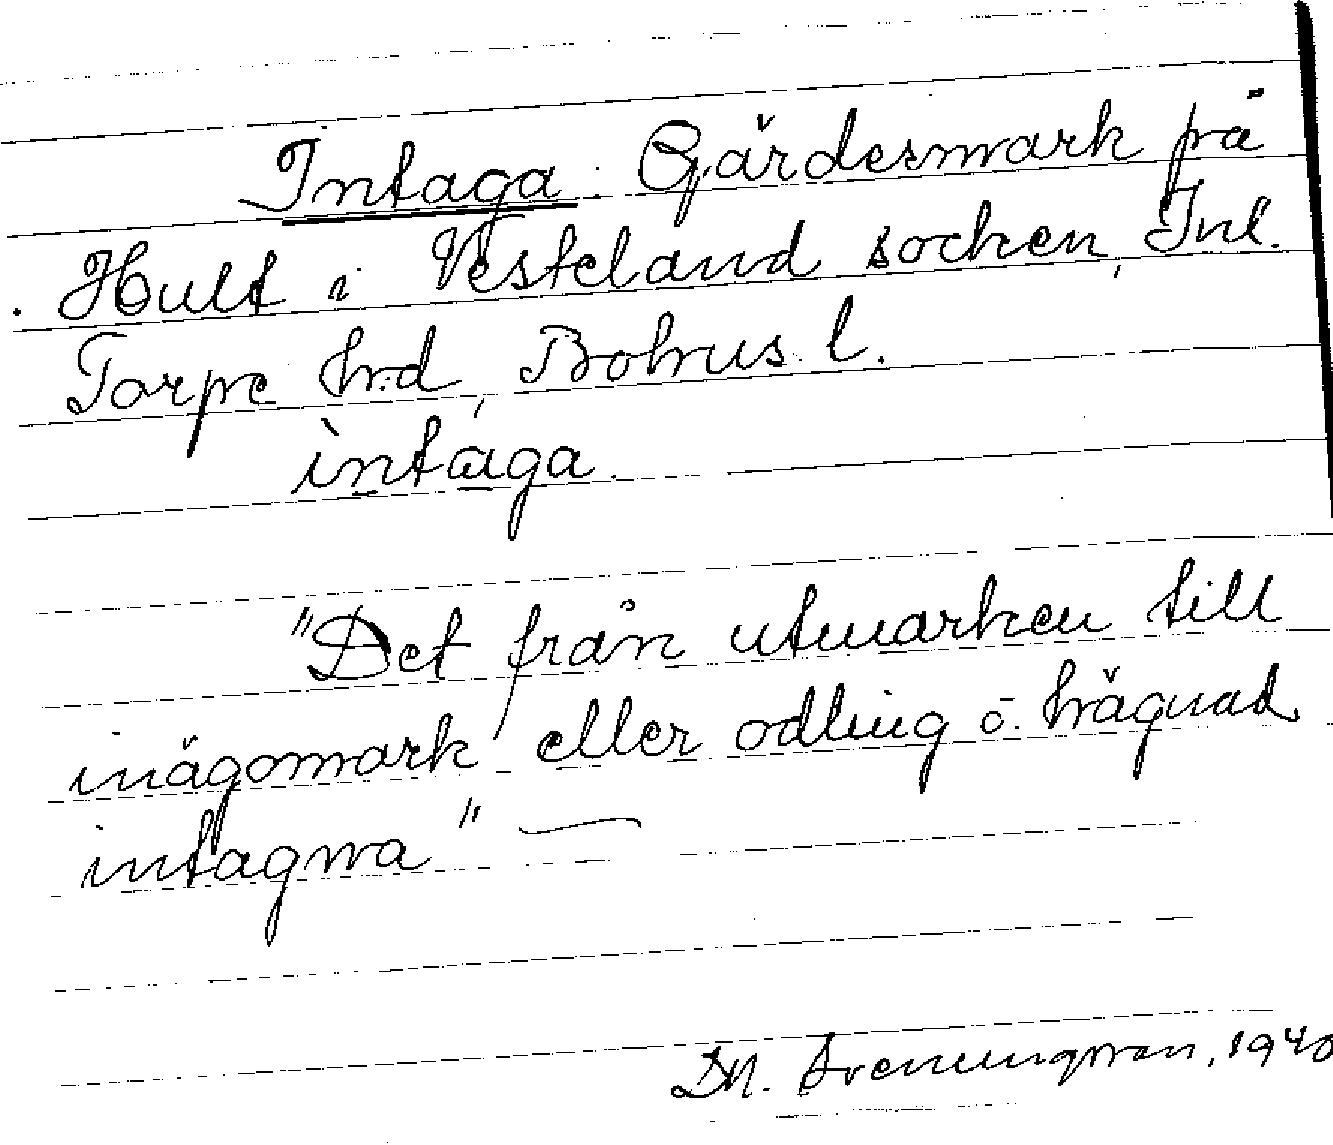 Intaga. Gärdesmark på
Hult i Vesteland socken, Inl.
Torpe hrd, Bohus l.
ìntága.
"Det från utmarken till
inägomark eller odling o. hägnad
intagna"
1940